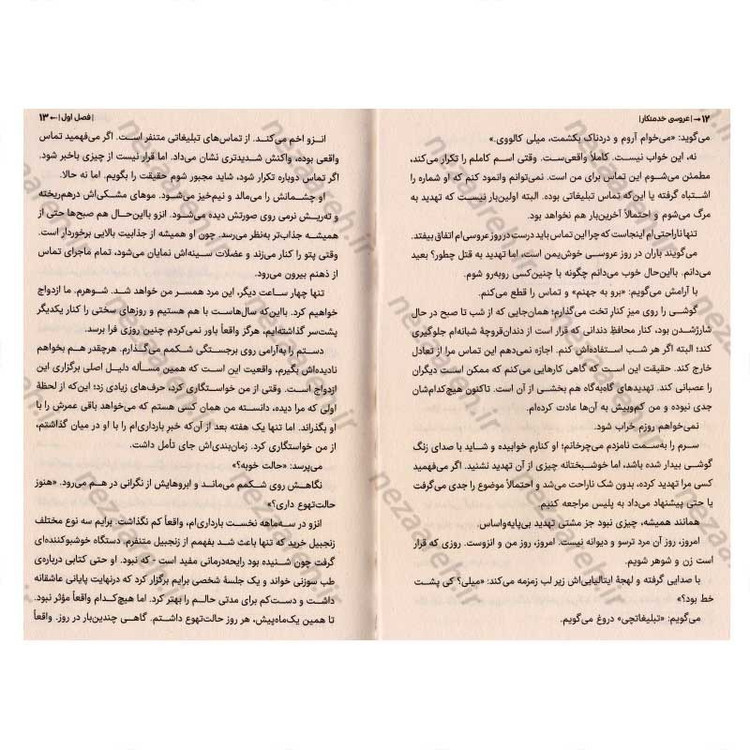 ۱۲ → | عروسی خدمتکار |
می‌گوید: «می‌خوام آروم و دردناک بکشمت، میلی کالووی.»
نه، این خواب نیست. کاملاً واقعی‌ست. وقتی اسم کاملم را تکرار می‌کند،
مطمئن می‌شوم این تماس برای من است. نمی‌توانم وانمود کنم که او شماره را
اشتباه گرفته یا این‌که تماس تبلیغاتی بوده. البته اولین‌بار نیست که تهدید به
مرگ می‌شوم و احتمالاً آخرین‌بار هم نخواهد بود.
تنها ناراحتی‌ام اینجاست که چرا این تماس باید درست در روز عروسی‌ام اتفاق بیفتد.
می‌گویند باران در روز عروسی خوش‌یمن است، اما تهدید به قتل چطور؟ بعید
می‌دانم. بااین‌حال خوب می‌دانم چگونه با چنین کسی روبه‌رو شوم.
با آرامش می‌گویم: «برو به جهنم» و تماس را قطع می‌کنم.
گوشی را روی میز کنار تخت می‌گذارم؛ همان‌جایی که از شب تا صبح در حال
شارژشدن بود، کنار محافظِ دندانی که قرار است از دندان‌قروچهٔ شبانه‌ام جلوگیری
کند؛ البته اگر هر شب استفاده‌اش کنم. اجازه نمی‌دهم این تماس مرا از تعادل
خارج کند. حقیقت این است که گاهی کارهایی می‌کنم که ممکن است دیگران
را عصبانی کند. تهدیدهای گاه‌به‌گاه هم بخشی از آن است. تاکنون هیچ‌کدام‌شان
جدی نبوده و من کم‌وبیش به آن‌ها عادت کرده‌ام.
نمی‌خواهم روزم خراب شود.
سرم را به‌سمت نامزدم می‌چرخانم؛ او کنارم خوابیده و شاید با صدای زنگ
گوشی بیدار شده باشد، اما خوشبختانه چیزی از آن تهدید نشنید. اگر می‌فهمید
کسی مرا تهدید کرده، بدون شک ناراحت می‌شد و احتمالاً موضوع را جدی می‌گرفت
یا حتی پیشنهاد می‌داد به پلیس مراجعه کنیم.
همانند همیشه، چیزی نبود جز مشتی تهدید بی‌پایه‌واساس.
امروز، روز آن مرد ترسو و دیوانه نیست. امروز، روز من و انزوست. روزی که قرار
است زن و شوهر شویم.
با صدایی گرفته و لهجهٔ ایتالیایی‌اش زیر لب زمزمه می‌کند: «میلی؟ کی پشت
خط بود؟»
می‌گویم: «تبلیغاتچی» دروغ می‌گویم.
| فصل اول | ← ۱۳
انزو اخم می‌کند. از تماس‌های تبلیغاتی متنفر است. اگر می‌فهمید تماس
واقعی بوده، واکنش شدیدتری نشان می‌داد. اما قرار نیست از چیزی باخبر شود.
اگر تماس دوباره تکرار شود، شاید مجبور شوم حقیقت را بگویم. اما نه حالا.
او چشمانش را می‌مالد و نیم‌خیز می‌شود. موهای مشکی‌اش درهم‌ریخته
و ته‌ریش نرمی روی صورتش دیده می‌شود. انزو بااین‌حال هم صبح‌ها حتی از
همیشه جذاب‌تر به‌نظر می‌رسد. چون او همیشه از جذابیت بالایی برخوردار است.
وقتی پتو را کنار می‌زند و عضلات سینه‌اش نمایان می‌شود، تمام ماجرای تماس
از ذهنم بیرون می‌رود.
تنها چهار ساعت دیگر، این مرد همسر من خواهد شد. شوهرم. ما ازدواج
خواهیم کرد. بااین‌که سال‌هاست با هم هستیم و روزهای سختی را کنار یکدیگر
پشت‌سر گذاشته‌ایم، هرگز واقعاً باور نمی‌کردم چنین روزی فرا برسد.
دستم را به‌آرامی روی برجستگی شکمم می‌گذارم. هرچقدر هم بخواهم
نادیده‌اش بگیرم، واقعیت این است که همین مسأله دلیل اصلی برگزاری این
ازدواج است. وقتی از من خواستگاری کرد، حرف‌های زیادی زد؛ این‌که از لحظهٔ
اولی که مرا دیده، دانسته من همان کسی هستم که می‌خواهد باقی عمرش را با
او بگذراند. اما تنها یک هفته بعد از آن‌که خبرِ بارداری‌ام را با او در میان گذاشتم،
از من خواستگاری کرد. زمان‌بندی‌اش جای تأمل داشت.
می‌پرسد: «حالت خوبه؟»
نگاهش روی شکمم می‌ماند و ابروهایش از نگرانی در هم می‌رود. «هنوز
حالت‌تهوع داری؟»
انزو در سه‌ماهه نخست بارداری‌ام، واقعاً کم نگذاشت. برایم سه نوع مختلف
زنجبیل خرید که تنها باعث شد بفهمم از زنجبیل متنفرم. دستگاه خوشبوکننده‌ای
گرفت چون شنیده بود رایحه‌درمانی مفید است - که نبود. او حتی کتابی درباره‌ی
طب سوزنی خواند و یک جلسهٔ شخصی برایم برگزار کرد که درنهایت پایانی عاشقانه
داشت و دست‌کم برای مدتی حالم را بهتر کرد. اما هیچ‌کدام واقعاً مؤثر نبود.
تا همین یک‌ماه‌پیش، هر روز حالت‌تهوع داشتم. گاهی چندین‌بار در روز. واقعاً
nezaareh.ir